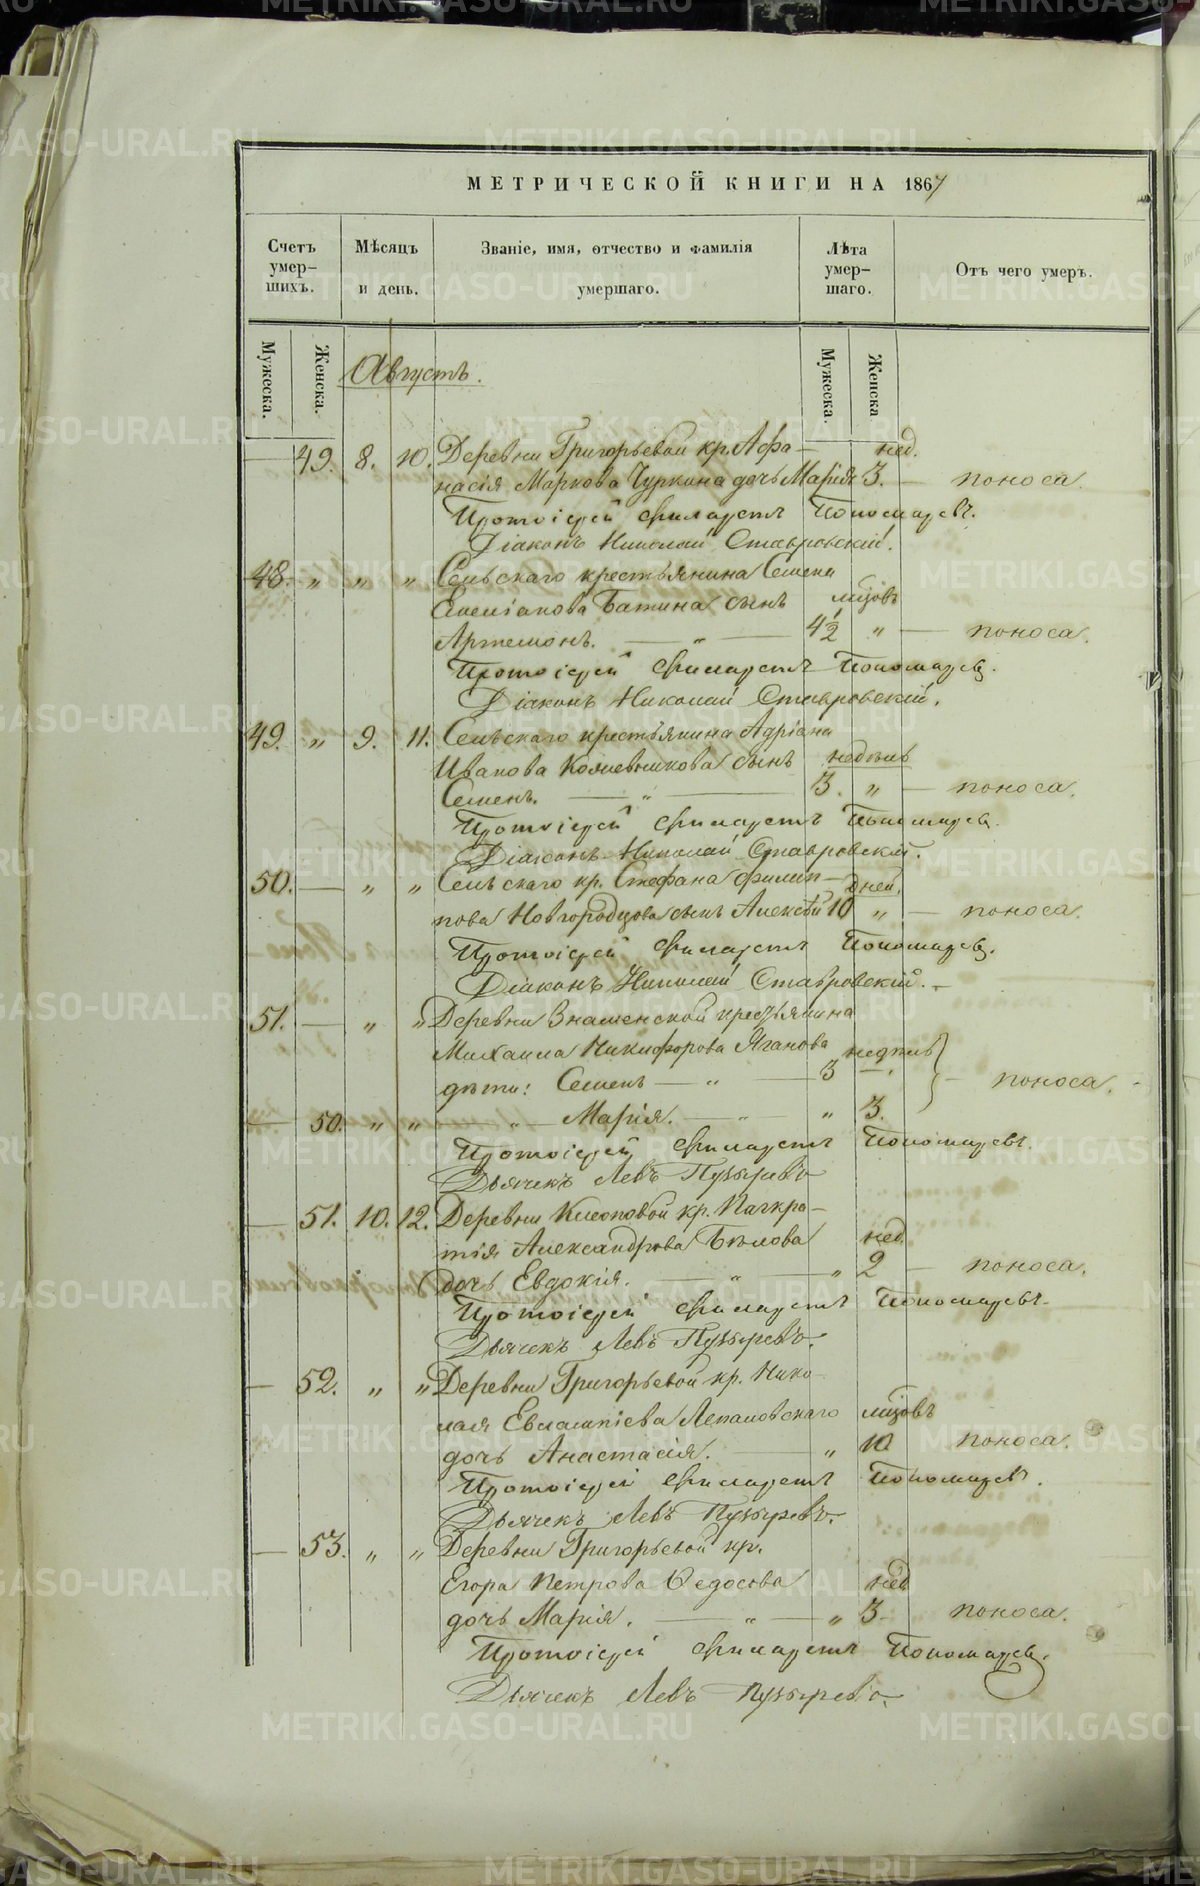 МЕТРИЧЕСКОЙ КНИГИ НА 1867
Счетъ умер-шихъ.
Мѣсяцъ и день.
Званіе, имя, отчество и фамилія умершаго.
Лѣта умер-шаго.
Отъ чего умеръ.
Мужеска. Женска. Мужеска. Женска
Августъ.
49. 8. 10. Деревни Григорьевой кр. Афа- нед.
насія Маркова Чуркина дочь Марія 3. — поноса.
Протоіерей Филаретъ Пономаревъ.
Діаконъ Николай Ставровскій.
48. " " " Сельскаго крестьянина Семена
Емелiанова Батина сынъ мѣсяцовъ
Артемонъ. — " — 4 1/2 " — поноса.
Протоіерей Филаретъ Пономаревъ.
Діаконъ Николай Ставровскій.
49. " 9. 11. Сельскаго крестьянина Адріана
Иванова Кожевникова сынъ недѣль
Семенъ. — " — 3. " — поноса.
Протоіерей Филаретъ Пономаревъ.
Діаконъ Николай Ставровскій.
50. — " " Сельскаго кр. Стефана Филип- дней.
пова Новгородцова сынъ Алексѣй 10 " — поноса.
Протоіерей Филаретъ Пономаревъ.
Діаконъ Николай Ставровскій. —
51. — " " Деревни Знаменской крестьянина
Михаила Никифорова Яганова недѣль
дѣти: Семенъ — " — 3 — поноса.
— 50. " " " — Марія. — " — " 3.
Протоіерей Филаретъ Пономаревъ.
Дьячекъ Левъ Пузыревъ
— 51. 10. 12. Деревни Клеоповой кр. Панкра-
тія Александрова Бѣлова нед.
дочь Евдокія. — " — " 2 — поноса.
Протоіерей Филаретъ Пономаревъ.
Дьячекъ Левъ Пузыревъ.
— 52. " " Деревни Григорьевой кр. Нико-
лая Евлампіева Лепаловскаго мѣсяцовъ
дочь Анастасія. — " 10 поноса.
Протоіерей Филаретъ Пономаревъ.
Дьячекъ Левъ Пузыревъ.
— 53. " " Деревни Григорьевой кр.
Егора Петрова Ѳедосова нед
дочь Марія. — " — " 3. поноса.
Протоіерей Филаретъ Пономаревъ.
Дьячекъ Левъ Пузыревъ.
METRIKI.GASO-URAL.RU